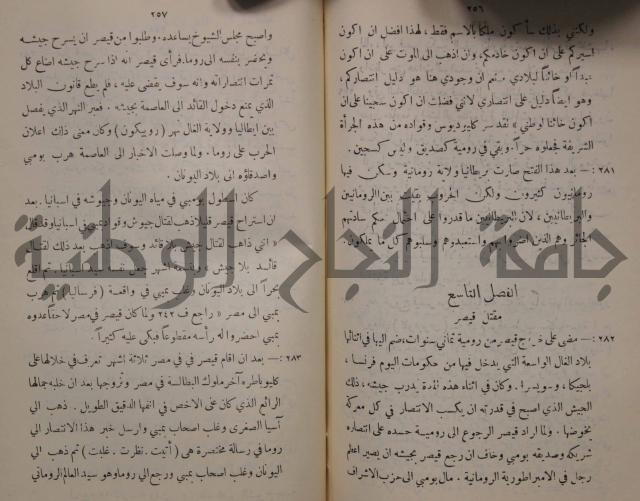 ٢٥٦
ولكنني بذلك سأكون ملكا بالاسم فقط ، لهذا افضل ان اكون
اسيركم على ان اكون خادمكم، وان اذهب الى الموت على ان اكون
او خائناً لبلادي. نعم ان وجودي هنا هو دليل انتصاركم ،
وهو ايضاً دليل على انتصاري لاني فضلت ان اكون سجينا على ان
اكون خائنا لوطني » لقد سر كلوديوس وقواده من هذه الجرأة
الشريفة فجعلوه حراً. وبقي في رومية كصديق وليس كسجين .
٢٨١ :— بعد هذا الفتح صارت بريطانيا ولاية رومانية وسكن فيها
رومانيون كثيرون ولكن الحروب بقيت بين الرومانيين
والبريطانيين ، لان البريطانيين ما قدروا على احتمال حكم سادتهم
الجائر وهم الذين واستعبدوهم وسلبوهم كل ما يملكون.
الفصل التاسع
مقتل قيصر
٢٨٢ :— مضى على خروج قيصر من رومية ثماني سنوات، ضم اليها في اثنائها
بلاد الغال الواسعة التي يدخل فيها من حكومات اليوم فرنسا ،
بلجيكا ، وسويسرا. وكان في اثناء هذه المدة يدرب جيشه، ذلك
الجيش الذي اصبح في قدرته ان يكسب الانتصار في كل معركة
يخوضها . ولما اراد قيصر الرجوع الى رومية حسده على انتصاره
شريكه وصديقه بومبي وخاف ان رجع قيصر بجيشه ان يصير اعظم
رجل في الامبراطورية الرومانية . مال بومبي الى حزب الاشراف
٢٥٧
واصبح مجلس الشيوخ يساعده . وطلبوا من قيصر ان يسرح جيشه
ويحضر بنفسه الى روما. فرأى قيصر انه اذا سرح جيشه اضاع كل
ثمرات انتصاراته وانه سوف يقضى عليه ، فلم يطع قانون البلاد
الذي يمنع دخول القائد الى العاصمة بجيشه . فعبر النهر الذي يفصل
بين ايطاليا وولاية الغال نهر ( روبيكون) وكان معنى ذلك اعلان
الحرب على روما. ولما وصلت الاخبار الى العاصمة هرب بومبي
واصدقاؤه الى بلاد اليونان .
كان اسطول بومبي في مياه اليونان وجيوشه في اسبانيا . بعد
ان استراح قيصر قليلا ذهب لقتال جيوش وقواد بمبي في اسبانيا وقد قال
« انني ذهب لقتال جيش بلا قائد وسوف اذهب بعد ذلك لقتال
قائد بلا جيش » اشهر جعل نفسه سيد اسبانيا . ثم اقلع
بحراً الى بلاد اليونان وغلب بمبي في واقعة ( فرساليا ) ثم هرب
بمبي الى مصر « راجع ف ٢٤٢ ولما كان قيصر في مصر لاحقا عدوه
بمبي احضروا له رأسه مقطوعاً فبكى عليه كثيراً.
٢٨٣ :— بعد ان اقام قيصر في في مصر ثلاثة اشهر تعرف في خلالها على
كليوباطره آخر ملوك البطالسة في مصر وتزوجها بعد ان خلبه جمالها
الرائع الذي كان على الاخص في انفها الدقيق الطويل . ذهب الى
آسيا الصغرى وغلب اصحاب بمبي وارسل خبر هذا الانتصار الى
روما في رسالة مختصرة هي ( أتيت . نظرت . غلبت ) ثم ذهب الى
اليونان وغلب اصحاب بمبي ورجع الى روما وهو سيد العالم الروماني
جامعة النجاح الوطنية